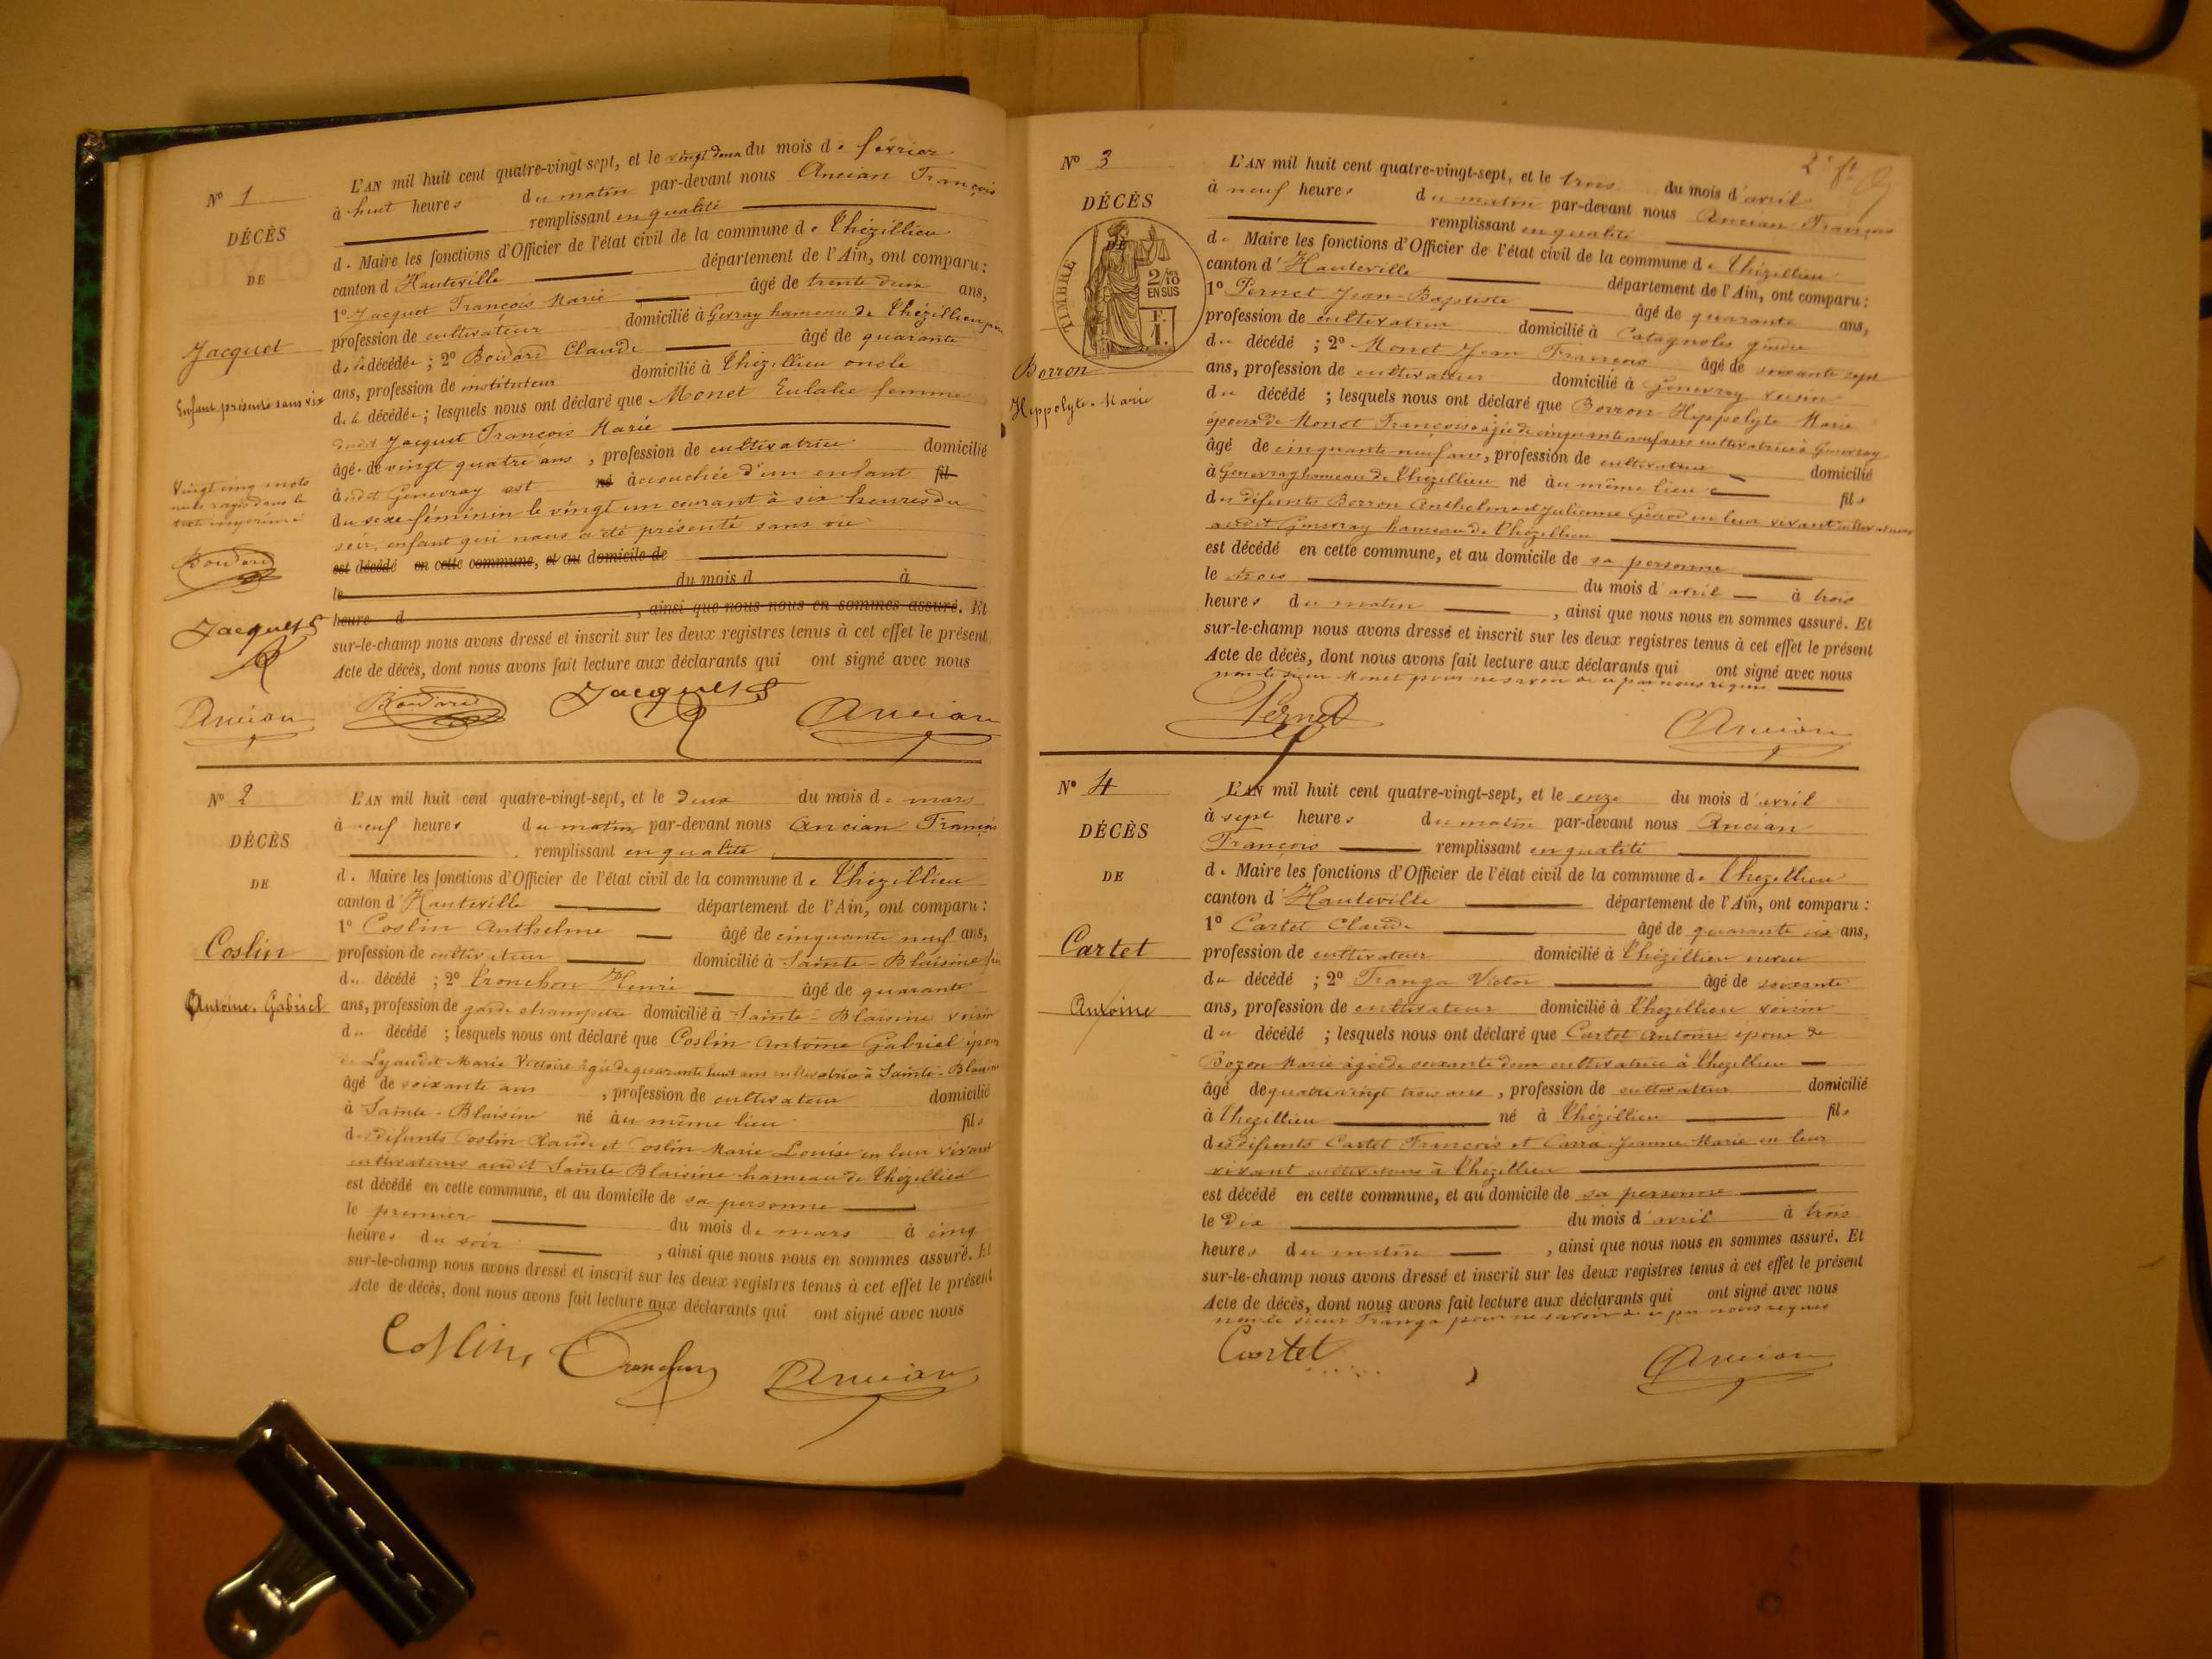 Nº 1
DÉCÈS
DE
Jacquet
Enfant présenté sans vie
Vingt cinq mots
nuls rayés dans le
texte imprimé
Boudard
Jacquet F
Ancian
L'AN mil huit cent quatre-vingt-sept, et le vingt deux du mois de février
à huit heures du matin par-devant nous Ancian François
remplissant en qualité
de Maire les fonctions d'Officier de l'état civil de la commune de Thézillieu
canton d'Hauteville département de l'Ain, ont comparu :
1º Jacquet François Marie âgé de trente deux ans,
profession de cultivateur domicilié à Genvray hameau de Thézillieu père
de la décédée ; 2º Boudard Claude âgé de quarante
ans, profession de instituteur domicilié à Thézillieu oncle
de la décédée ; lesquels nous ont déclaré que Monet Eulalie femme
dudit Jacquet François Marie
âgée de vingt quatre ans, profession de cultivatrice domicilié
à audit Genevray est né accouchée d'un enfant fil
du sexe féminin le vingt un courant à six heures du
soir, enfant qui nous a été présenté sans vie
est décédé en cette commune, et au domicile de
le du mois d à
heure d , ainsi que nous nous en sommes assuré. Et
sur-le-champ nous avons dressé et inscrit sur les deux registres tenus à cet effet le présent
Acte de décès, dont nous avons fait lecture aux déclarants qui ont signé avec nous
Boudard Jacquet F Ancian
Nº 2
DÉCÈS
DE
Coslin
Antoine, Gabriel
L'AN mil huit cent quatre-vingt-sept, et le deux du mois de mars
à neuf heures du matin par-devant nous Ancian François
remplissant en qualité
de Maire les fonctions d'Officier de l'état civil de la commune de Thézillieu
canton d'Hauteville département de l'Ain, ont comparu :
1º Coslin Anthelme âgé de cinquante neuf ans,
profession de cultivateur domicilié à Sainte-Blaisine
du décédé ; 2º Tronchon Henri âgé de quarante
ans, profession de garde champêtre domicilié à Sainte-Blaisine voisin
du décédé ; lesquels nous ont déclaré que Coslin Antoine Gabriel époux
de Lyaudet Marie Victoire âgée de quarante huit ans cultivatrice à Sainte-Blaisine
âgé de soixante ans, profession de cultivateur domicilié
à Sainte-Blaisine né au même lieu fils
des défunts Coslin Claude et Coslin Marie Louise en leur vivant
cultivateurs audit Sainte Blaisine hameau de Thézillieu
est décédé en cette commune, et au domicile de sa personne
le premier du mois de mars à cinq
heures du soir , ainsi que nous nous en sommes assuré. Et
sur-le-champ nous avons dressé et inscrit sur les deux registres tenus à cet effet le présent
Acte de décès, dont nous avons fait lecture aux déclarants qui ont signé avec nous
Coslin, Tronchon Ancian
2e ft
Nº 3
DÉCÈS
DE
TIMBRE
2/10
EN SUS
F.
1.
Borron
Hippolyte-Marie
L'AN mil huit cent quatre-vingt-sept, et le trois du mois d'avril
à neuf heures du matin par-devant nous Ancian François
remplissant en qualité
de Maire les fonctions d'Officier de l'état civil de la commune de Thézillieu
canton d'Hauteville département de l'Ain, ont comparu :
1º Pernet Jean-Baptiste âgé de quarante ans,
profession de cultivateur domicilié à Catagnoles gendre
du décédé ; 2º Monet Jean François âgé de soixante sept
ans, profession de cultivateur domicilié à Genevray voisin
du décédé ; lesquels nous ont déclaré que Borron Hippolyte Marie
époux de Monet Françoise âgée de cinquante neuf ans cultivatrice à Genevray
âgé de cinquante neuf ans, profession de cultivateur domicilié
à Genevray hameau de Thézillieu né au même lieu fils
des défunts Borron Anthelme et Julienne en leur vivant cultivateurs
audit Genevray hameau de Thézillieu
est décédé en cette commune, et au domicile de sa personne
le trois du mois d'avril à trois
heures du matin , ainsi que nous nous en sommes assuré. Et
sur-le-champ nous avons dressé et inscrit sur les deux registres tenus à cet effet le présent
Acte de décès, dont nous avons fait lecture aux déclarants qui ont signé avec nous
non le sieur Monet pour ne savoir de ce par nous requis
Pernet Ancian
Nº 4
DÉCÈS
DE
Cartet
Antoine
L'AN mil huit cent quatre-vingt-sept, et le onze du mois d'avril
à sept heures du matin par-devant nous Ancian
François remplissant en qualité
de Maire les fonctions d'Officier de l'état civil de la commune de Thézillieu
canton d'Hauteville département de l'Ain, ont comparu :
1º Cartet Claude âgé de quarante six ans,
profession de cultivateur domicilié à Thézillieu neveu
du décédé ; 2º Franga Victor âgé de soixante
ans, profession de cultivateur domicilié à Thézillieu voisin
du décédé ; lesquels nous ont déclaré que Cartet Antoine époux de
Bozon Marie âgée de soixante deux cultivatrice à Thézillieu
âgé de quatre vingt trois ans, profession de cultivateur domicilié
à Thézillieu né à Thézillieu fils
des défunts Cartet François et Carra Jeanne Marie en leur
vivant cultivateurs à Thézillieu
est décédé en cette commune, et au domicile de sa personne
le dix du mois d'avril à trois
heures du matin , ainsi que nous nous en sommes assuré. Et
sur-le-champ nous avons dressé et inscrit sur les deux registres tenus à cet effet le présent
Acte de décès, dont nous avons fait lecture aux déclarants qui ont signé avec nous
non le sieur Franga pour ne savoir de ce par nous requis
Cartet Ancian